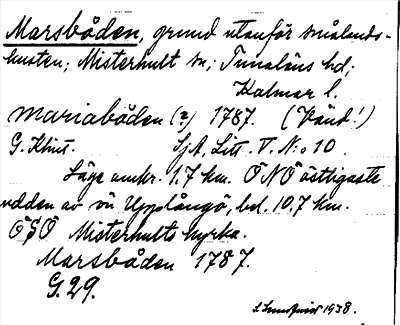 Marsbåden, grund utanför smålands-
kusten; Misterhult sn; Tunaläns hd;
Kalmar l.
Mariabåden (?) 1787. (Vänd!)
G. Klint. Sjk. Litt. V. N:o 10
Läge omkr. 1.7 km. ÖNÖ östligaste
udden av ön Upplångö, bel. 10.7 km.
ÖSÖ Misterhults kyrka.
Marsbåden 1787.
G.29.
1938.